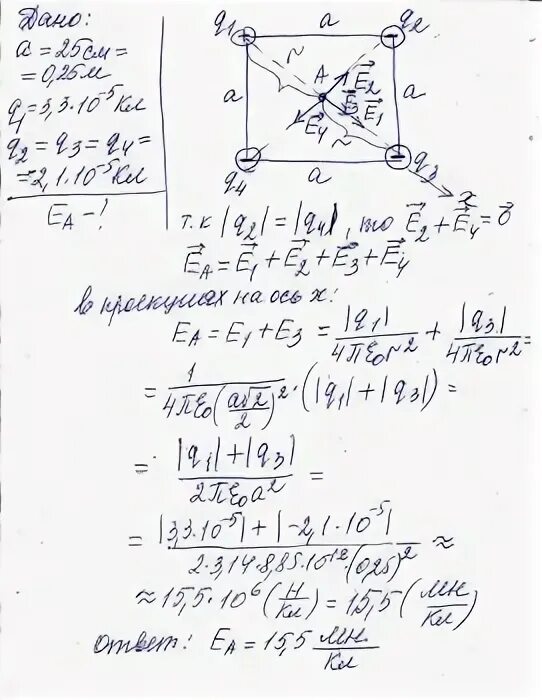 Дано:
a = 25см =
= 0,25м
q₁ = 3,3·10⁻⁵Кл
q₂ = q₃ = q₄ =
= 2,1·10⁻⁵Кл
E_A - ?
q₁ a q₂
~
a A E⃗₂ a
E⃗₃ E⃗₁
E⃗₄ ~
q₄ a q₃
x
т.к |q₂| = |q₄|, то E⃗₂ + E⃗₄ = 0⃗
E⃗_A = E⃗₁ + E⃗₂ + E⃗₃ + E⃗₄
в проекциях на ось x:
E_A = E₁ + E₃ = |q₁| / 4πε₀r² + |q₃| / 4πε₀r² =
= 1 / 4πε₀(a√2 / 2)² · (|q₁| + |q₃|) =
= |q₁| + |q₃| / 2πε₀a² =
= |3,3·10⁻⁵| + |-2,1·10⁻⁵| / 2·3,14·8,85·10⁻¹²·(0,25)² ≈
≈ 15,5·10⁶ (Н / Кл) = 15,5 (МН / Кл)
ответ: E_A = 15,5 МН / Кл